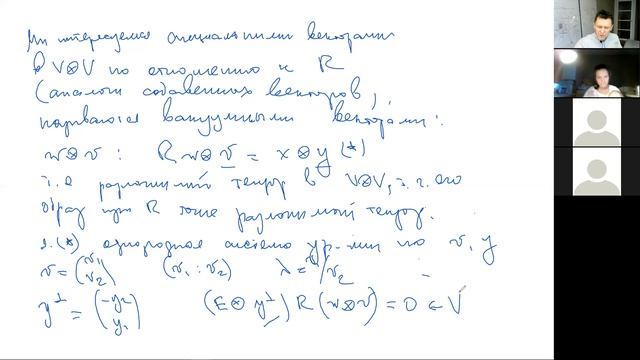 Мы интересуемся специальными векторами
в V⊗V по отношению к R
(аналоги собственных векторов),
называются вакуумными векторами:
w⊗v : R w⊗v = x⊗y (*)
т.е разложимый тензор в V⊗V, т.ч. его
образ при R тоже разложимый тензор.
(*) однородная система ур-ний по v, y
v = (v₁ v₂) (v₁ : v₂) λ = v₁/v₂
y^⊥ = (-y₂ y₁) (E⊗y^⊥) R (w⊗v) = 0 ∈ V